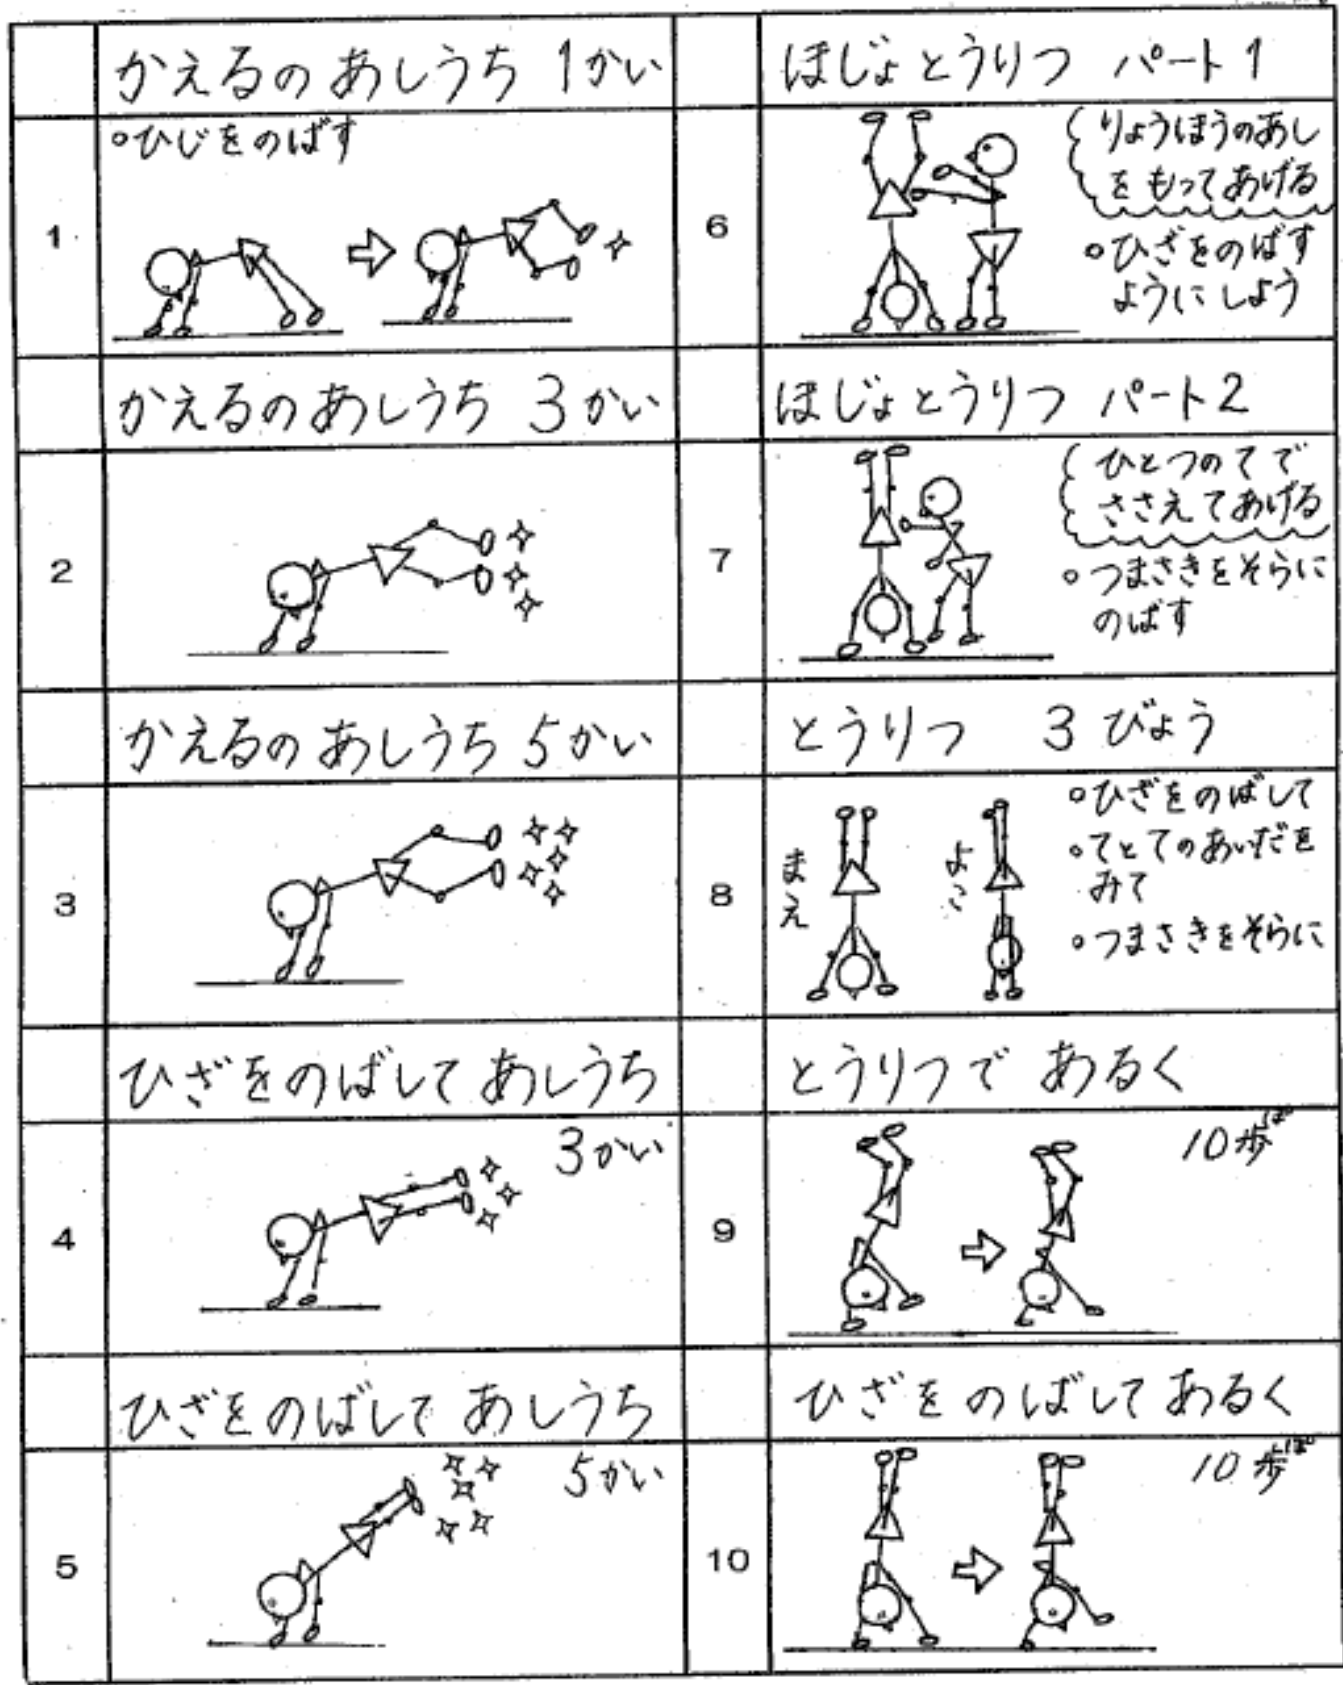 かえるのあしうち 1かい
1
・ひじをのばす
かえるのあしうち 3かい
2
かえるのあしうち 5かい
3
ひざをのばして あしうち
4
3かい
ひざをのばして あしうち
5
5かい
ほじょとうりつ パート1
6
りょうほうのあし
をもってあげる
・ひざをのばす
ようにしよう
ほじょとうりつ パート2
7
ひとつのてで
ささえてあげる
・つまさきをそらに
のばす
とうりつ 3びょう
8
まえ
よこ
・ひざをのばして
・てとてのあいだを
みて
・つまさきをそらに
とうりつで あるく
9
10歩ぽ
ひざをのばして あるく
10
10歩ぽ